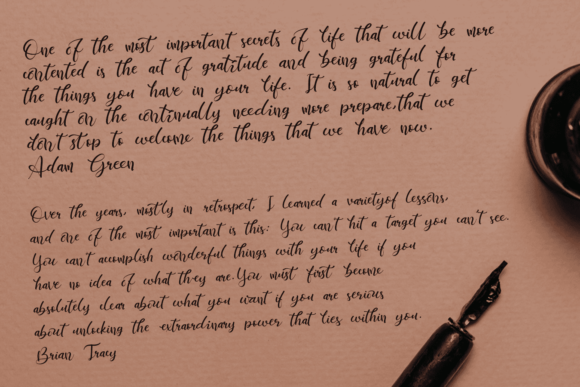 One of the most important secrets of life that will be more
contented is the act of gratitude and being grateful for
the things you have in your life. It is so natural to get
caught on the continually needing more prepare,that we
don't stop to welcome the things that we have now.
Adam Green
Over the years, mostly in retrospect, I learned a varietyof lessons,
and one of the most important is this: You can't hit a target you can't see.
You can't accomplish wonderful things with your life if you
have no idea of what they are.You must first become
absolutely clear about what you want if you are serious
about unlocking the extraordinary power that lies within you.
Brian Tracy